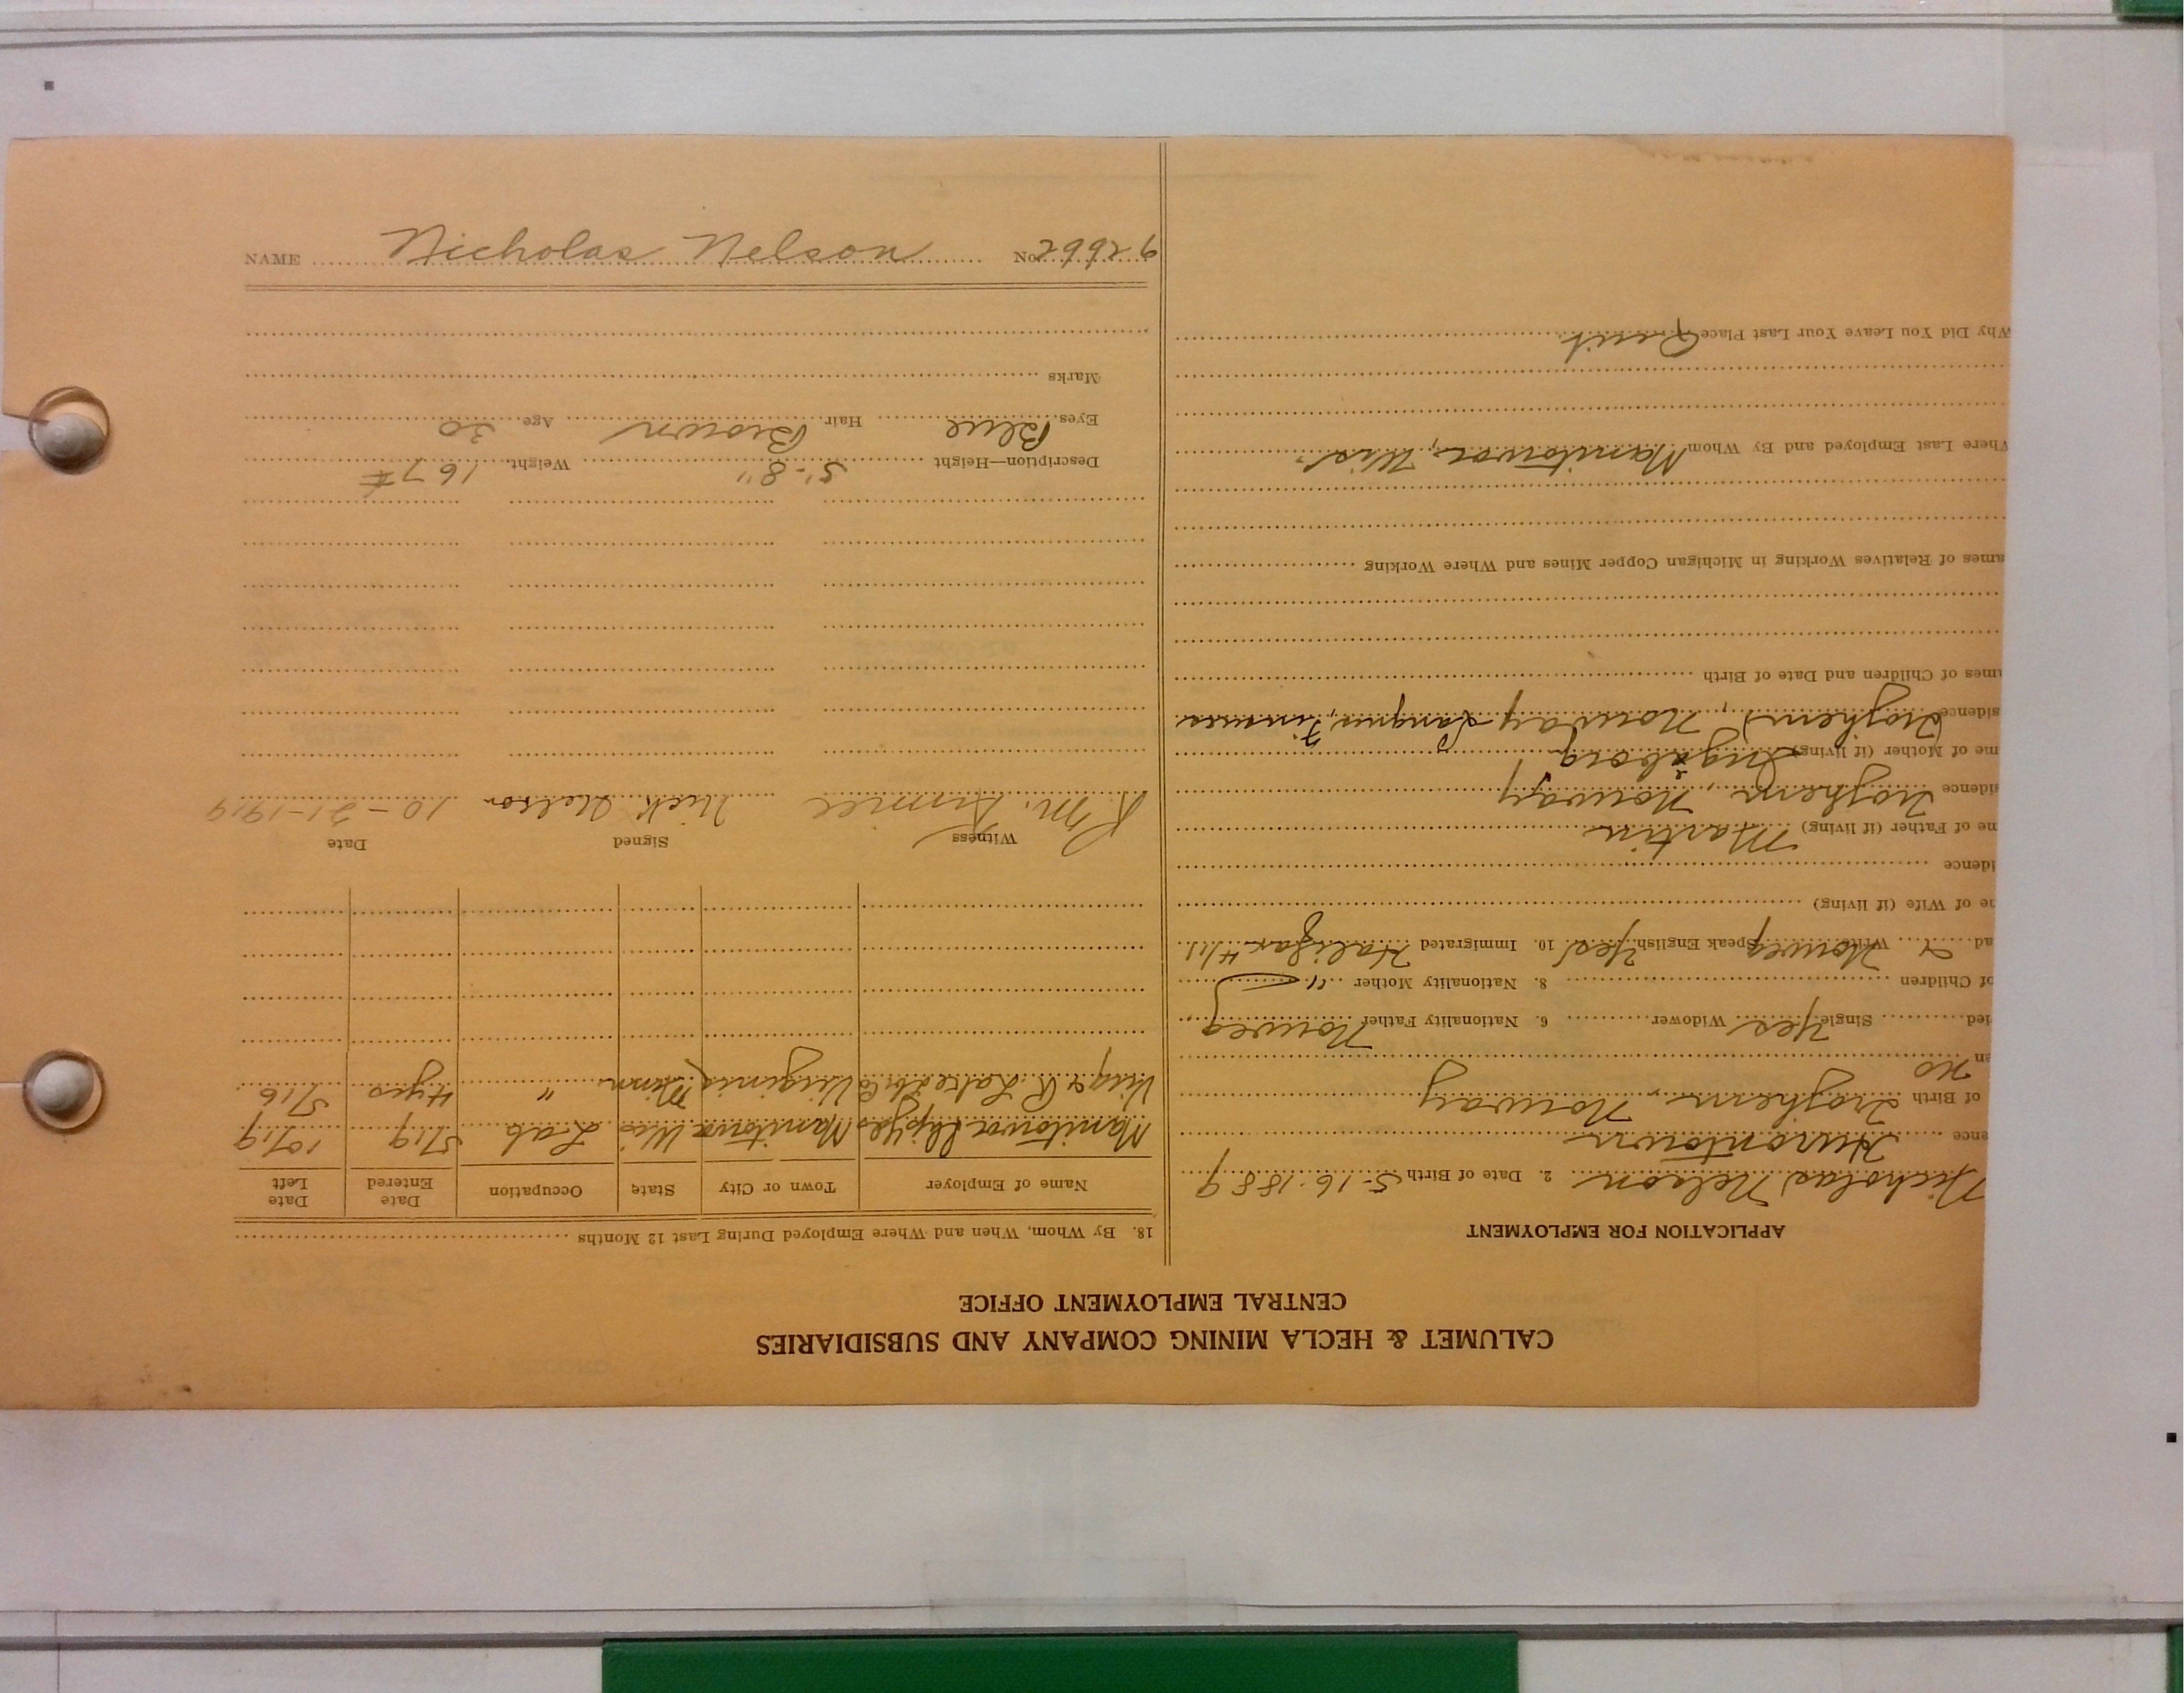 CALUMET & HECLA MINING COMPANY AND SUBSIDIARIES
CENTRAL EMPLOYMENT OFFICE
APPLICATION FOR EMPLOYMENT
Nicholas Nelson 2. Date of Birth 5-16-1889
ence Hurontown
of Birth Trojhem, Norway
en No
ied Single Yes Widower 6. Nationality Father Norweg
of Children 8. Nationality Mother "
ad Write Norweg Speak English Yes 10. Immigrated Halifax 4/11
ne of Wife (if living)
idence
ne of Father (if living) Martin
idence Trojhem, Norway
me of Mother (if living) Ingeborg
sidence Trojhem, Norway
mes of Children and Date of Birth
ames of Relatives Working in Michigan Copper Mines and Where Working
Where Last Employed and By Whom Manitowoc, Wis.
Why Did You Leave Your Last Place Quit
18. By Whom, When and Where Employed During Last 12 Months
Name of Employer Town or City State Occupation Date Entered Date Left
Manitowoc Manitowoc Wis Lab 5/19 10/19
Virg & R. Lake Virginia Minn " 4 yrs 5/16
Witness Signed Date
R. M. Nick Nelson 10-21-1919
Description—Height 5'-8" Weight 167#
Eyes Blue Hair Brown Age 30
Marks
NAME Nicholas Nelson No.